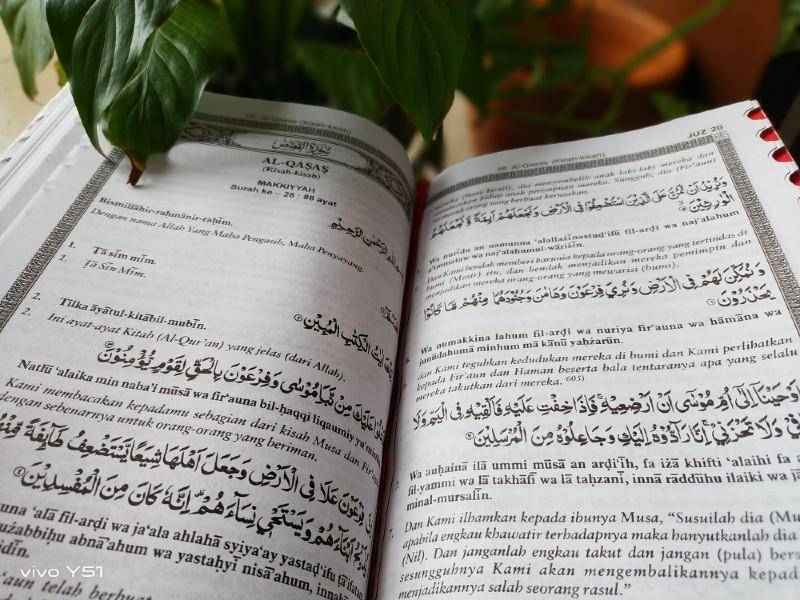 سُوْرَةُ الْقَصَصِ
AL-QAṢAṢ
(Kisah-kisah)
MAKKIYYAH
Surah ke – 28 : 88 ayat
Bismillāhir-raḥmānir-raḥīm.
Dengan nama Allah Yang Maha Pengasih, Maha Penyayang.
1. Ṭā sīm mīm.
1. Ṭā Sīn Mīm.
2. Tilka āyātul-kitābil-mubīn.
2. Ini ayat-ayat Kitab (Al-Qur'an) yang jelas (dari Allah).
مِنْ نَّبَاِ مُوْسٰى وَفِرْعَوْنَ بِالْحَقِّ لِقَوْمٍ يُّؤْمِنُوْنَ
Natlū 'alaika min naba'i mūsā wa fir'auna bil-ḥaqqi liqaumiy yu'minūn
Kami membacakan kepadamu sebagian dari kisah Musa dan Fir'aun
dengan sebenarnya untuk orang-orang yang beriman.
فِرْعَوْنَ عَلَا فِى الْاَرْضِ وَجَعَلَ اَهْلَهَا شِيَعًا يَّسْتَضْعِفُ طَاۤىِٕفَةً مِّنْهُمْ
اَبْنَاۤءَهُمْ وَيَسْتَحْيٖ نِسَاۤءَهُمْ اِنَّهٗ كَانَ مِنَ الْمُفْسِدِيْنَ
'alā fil-arḍi wa ja'ala ahlahā syiya'ay yastaḍ'ifu
abnā'ahum wa yastaḥyī nisā'ahum,
telah berbuat
28. Al-Qaṣaṣ (Kisah-kisah)
JUZ 20
(Bani Israil), dia menyembelih anak laki-laki mereka dan
membiarkan hidup anak perempuan mereka. Sungguh, dia (Fir'aun)
orang yang berbuat kerusakan.
وَنُرِيْدُ اَنْ نَّمُنَّ عَلَى الَّذِيْنَ اسْتُضْعِفُوْا فِى الْاَرْضِ وَنَجْعَلَهُمْ اَىِٕمَّةً وَّنَجْعَلَهُمُ
الْوٰرِثِيْنَ
Wa nurīdu an namunna 'alallażīnastuḍ'ifū fil-arḍi wa naj'alahum
a'immataw wa naj'alahumul-wāriṡīn.
Dan Kami hendak memberi karunia kepada orang-orang yang tertindas di
bumi (Mesir) itu, dan hendak menjadikan mereka pemimpin dan
menjadikan mereka orang-orang yang mewarisi (bumi).
وَنُمَكِّنَ لَهُمْ فِى الْاَرْضِ وَنُرِيَ فِرْعَوْنَ وَهَامٰنَ وَجُنُوْدَهُمَا مِنْهُمْ مَّا كَانُوْا
يَحْذَرُوْنَ
Wa numakkina lahum fil-arḍi wa nuriya fir'auna wa hāmāna wa
junūdahumā minhum mā kānū yaḥżarūn.
dan Kami teguhkan kedudukan mereka di bumi dan Kami perlihatkan
kepada Fir'aun dan Haman beserta bala tentaranya apa yang selalu
mereka takutkan dari mereka. 605)
وَاَوْحَيْنَآ اِلٰٓى اُمِّ مُوْسٰٓى اَنْ اَرْضِعِيْهِۚ فَاِذَا خِفْتِ عَلَيْهِ فَاَلْقِيْهِ فِى الْيَمِّ وَلَا
تَخَافِيْ وَلَا تَحْزَنِيْۚ اِنَّا رَاۤدُّوْهُ اِلَيْكِ وَجَاعِلُوْهُ مِنَ الْمُرْسَلِيْنَ
Wa auḥainā ilā ummi mūsā an arḍi'īh, fa iżā khifti 'alaihi fa
fil-yammi wa lā takhāfī wa lā taḥzanī, innā rāddūhu ilaiki wa
minal-mursalīn.
Dan Kami ilhamkan kepada ibunya Musa, "Susuilah dia (Mu
apabila engkau khawatir terhadapnya maka hanyutkanlah dia
(Nil). Dan janganlah engkau takut dan jangan (pula) bers
sesungguhnya Kami akan mengembalikannya kepad
menjadikannya salah seorang rasul."
vivo Y51